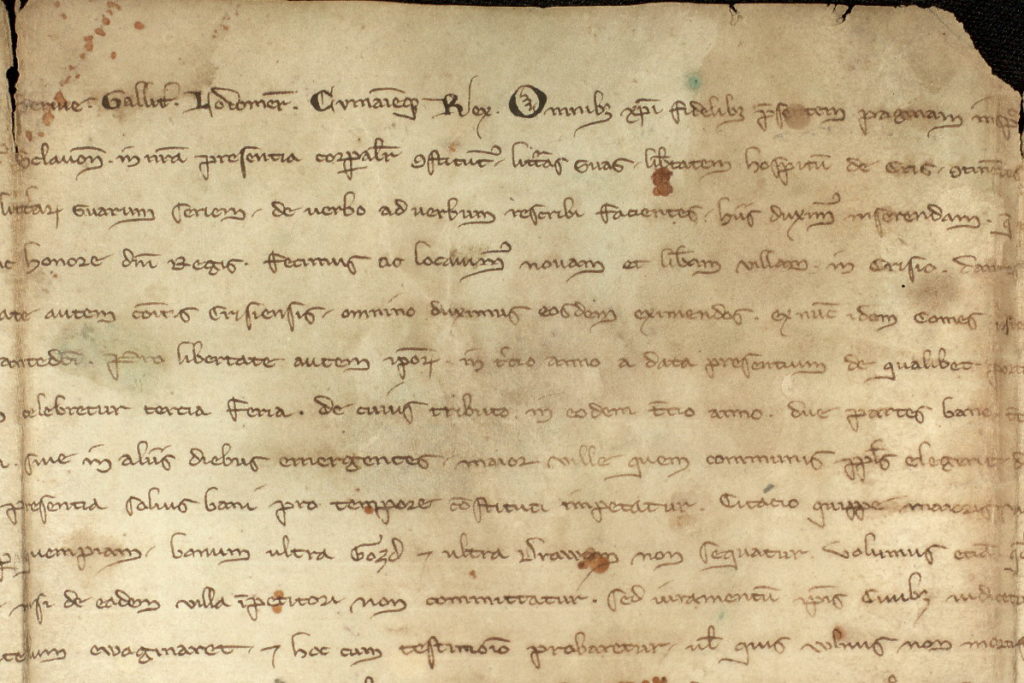 Seruie. Gallicie. Lodomerie. Cumanieque Rex. Omnibus xpi fidelibus presentem paginam
in nra presentia corporaliter constitutus, litteras suas, libertatem hospitum de Cris,
litterarum suarum seriem, de verbo ad verbum rescribi facientes, hiis duximus inserendam.
honore dni Regis. fecimus ac locauimus nouam et liberam villam. in Crisio.
autem Crisiensis, omnino duximus eosdem eximendos. ex nunc idem Comes
antedcti. Pro libertate autem ipor. in tercio anno a data presentium de qualibet porta
celebretur tercia feria. de cuius tributo. in eodem tercio anno. due partes bano
siue in aliis diebus emergentes, maior ville quem communis elegerit
presentia solius bani pro tempore constituti impetatur. Citacio quippe maioris
quempiam, banum ultra Gozd et ultra Drawam non sequatur. Volumus
nisi de eadem villa impetitori non committatur. Sed iuramentum ipis Ciuibz
ewaginaret, et hoc cum testimonio probaretur, uel quis non